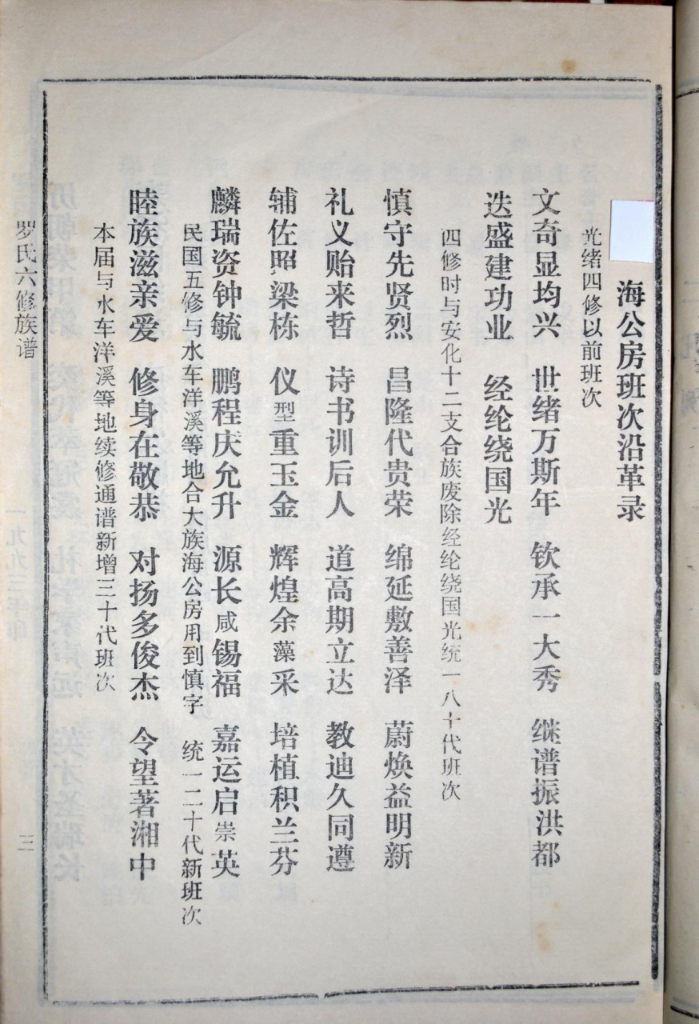 海公房班次沿革录
光绪四修以前班次
文奇显均兴 世绪万斯年 钦承一大秀 继谱振洪都
迭盛建功业 经纶绕国光
四修时与安化十二支合族废除经纶绕国光统一八十代班次
慎守先贤烈 昌隆代贵荣 绵延敷善泽 蔚焕益明新
礼义贻来哲 诗书训后人 道高期立达 教迪久同遵
辅佐照梁栋 仪型重玉金 辉煌余藻采 培植积兰芬
麟瑞资钟毓 鹏程庆允升 源长咸锡福 嘉运启崇英
民国五修与水车洋溪等地合大族海公房用到慎字 统一二十代新班次
睦族滋亲爱 修身在敬恭 对扬多俊杰 令望著湘中
本届与水车洋溪等地续修通谱新增三十代班次
罗氏六修族谱
三